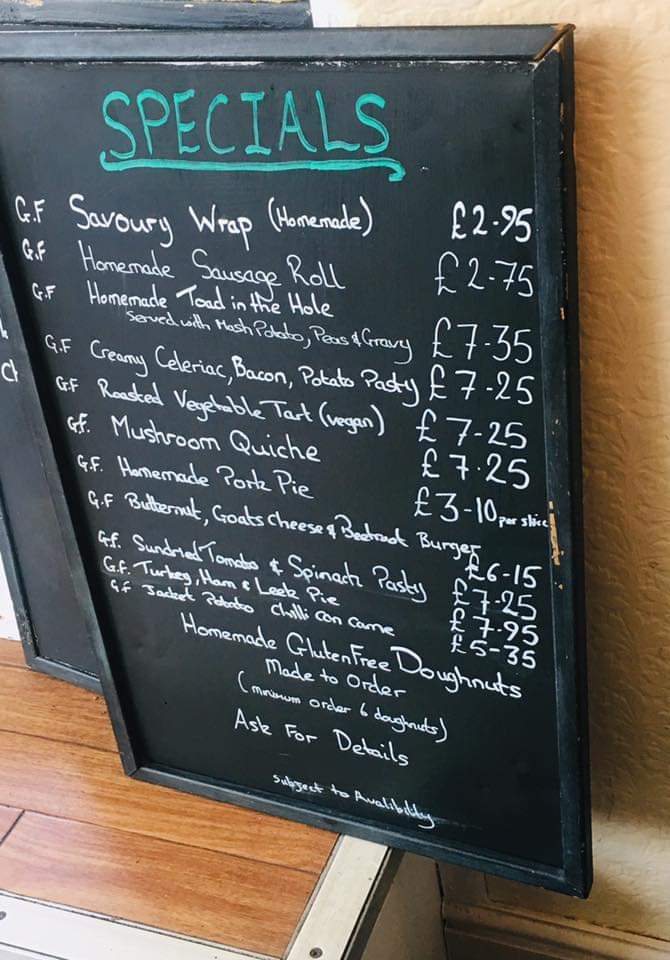 SPECIALS
G.F Savoury Wrap (Homemade) £2.95
G.F Homemade Sausage Roll £2.75
G.F Homemade Toad in the Hole
Served with Mash Potato, Peas & Gravy £7-35
G.F Creamy Celeriac, Bacon, Potato Pasty £7-25
G.F Roasted Vegetable Tart (vegan) £7-25
G.f. Mushroom Quiche £7.25
G.F. Homemade Pork Pie £3-10 per slice
G.F Butternut, Goats Cheese & Beetroot Burger £6-15
G.f. Sundried Tomato & Spinach Pasty £7-25
G.F. Turkey, Ham & Leek Pie £7-95
G.F Jacket Potato Chilli con carne £5-35
Homemade Gluten Free Doughnuts
Made to Order
(minimum order 6 doughnuts)
Ask For Details
Subject to Avalibility